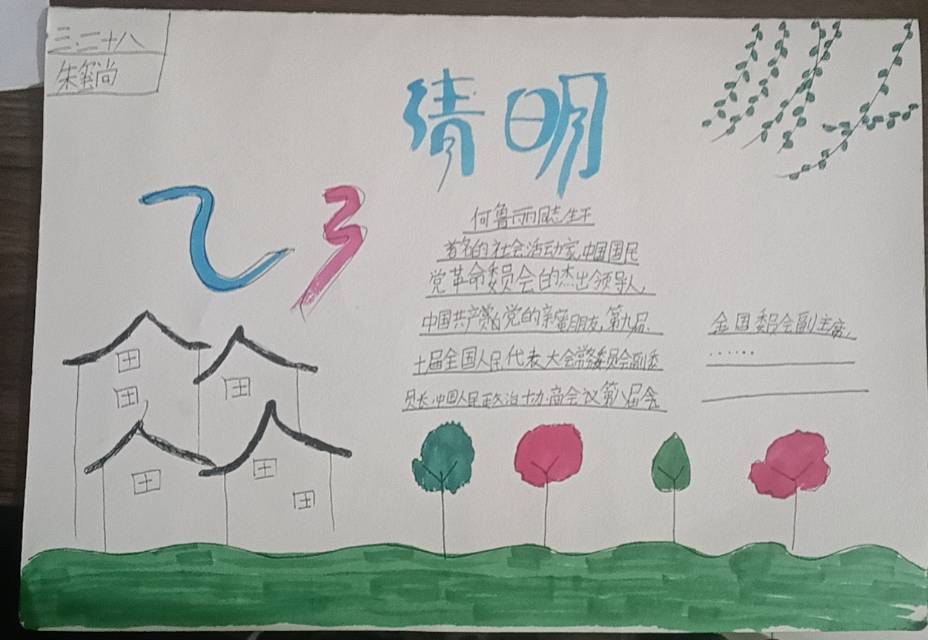 三.二十八
朱 尚
清明
乙 3
何鲁丽同志生于
著名的社会活动家,中国国民
党革命委员会的杰出领导人,
中国共产党的亲密朋友,第九届、
十届全国人民代表大会常务委员会副委
员长,中国人民政治协商会议第八届全
全国委员会副主席,
......